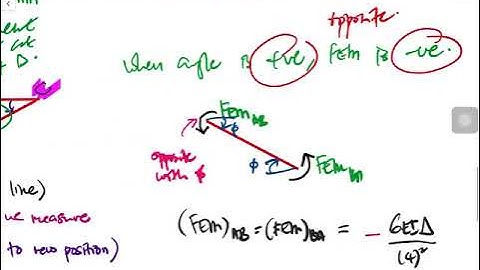 opposite.
when angle is +ve, FEM is -ve.
FEM AB
ϕ
opposite
with ϕ
ϕ
FEM BA
line)
we measure
to new position)
(FEM)AB = (FEM)BA = - 6EIΔ
(4)²